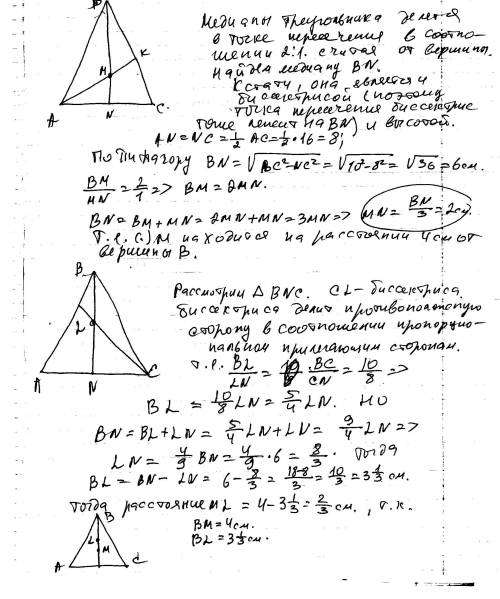 B
K
M
A N C.
Медианы треугольника делятся
в точке пересечения в соотно-
шении 2:1. считая от вершины.
Найдем медиану BN.
Кстати, она является и
биссектрисой (поэтому
точка пересечения биссектрис
тоже лежит на BN) и высотой.
AN=NC=½ AC=½·16=8;
По Пифагору BN=√BC²-NC² = √10²-8² = √36 = 6см.
BM/MN = 2/1 => BM=2MN.
BN=BM+MN=2MN+MN=3MN=> MN= BN/3 = 2см.
Т.е. M находится на расстоянии 4см от
вершины B.
B
L
A N C
Рассмотрим △ BNC. CL-биссектриса
биссектриса делит противоположную
сторону в соотношении пропорцио-
нальном прилегающим сторонам.
т.е. BL/LN = BC/CN = 10/8 =>
BL = 10/8 LN = 5/4 LN. но
BN=BL+LN= 5/4 LN+LN= 9/4 LN=>
LN= 4/9 BN= 4/9 · 6 = 8/3. Тогда
BL = BN - LN = 6 - 8/3 = 18-8/3 = 10/3 = 3⅓ см.
Тогда расстояние ML = 4-3⅓ = ⅔ см., т.к.
BM=4см.
BL=3⅓см.
B
L
M
A C